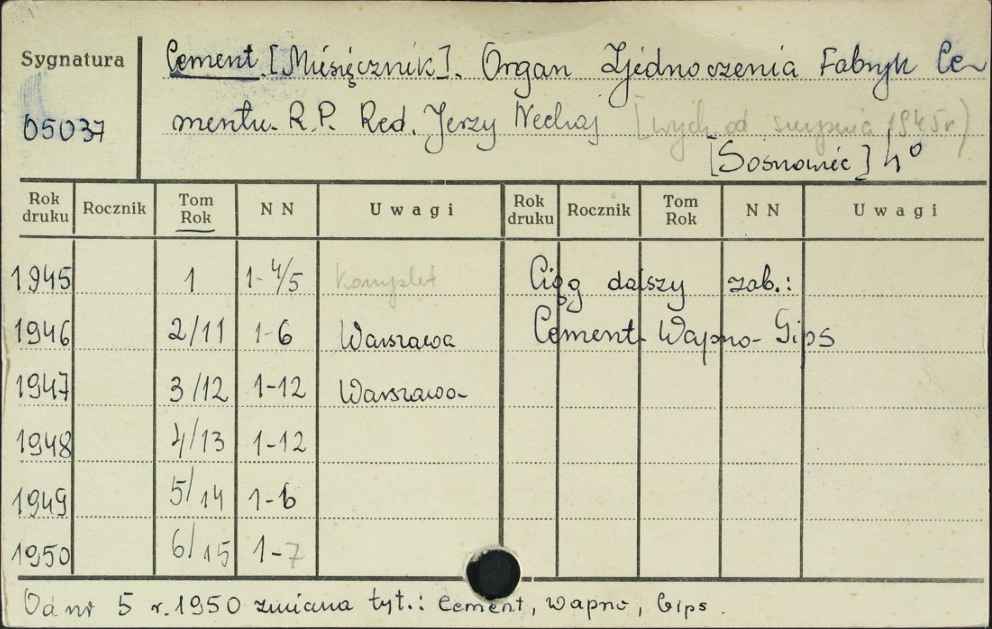 Sygnatura
05037
Cement. [Miesięcznik]. Organ Zjednoczenia Fabryk Ce-
mentu. R.P. Red. Jerzy Nechaj [wych od sierpnia 1945r]
[Sosnowiec] 4°
Rok druku Rocznik Tom Rok NN Uwagi Rok druku Rocznik Tom Rok NN Uwagi
1945 1 1-4/5 Komplet Ciąg dalszy zob.:
1946 2/11 1-6 Warszawa Cement-Wapno-Gips
1947 3/12 1-12 Warszawa
1948 4/13 1-12
1949 5/14 1-6
1950 6/15 1-7
Od nr 5 r.1950 zmiana tyt.: Cement, Wapno, Gips.